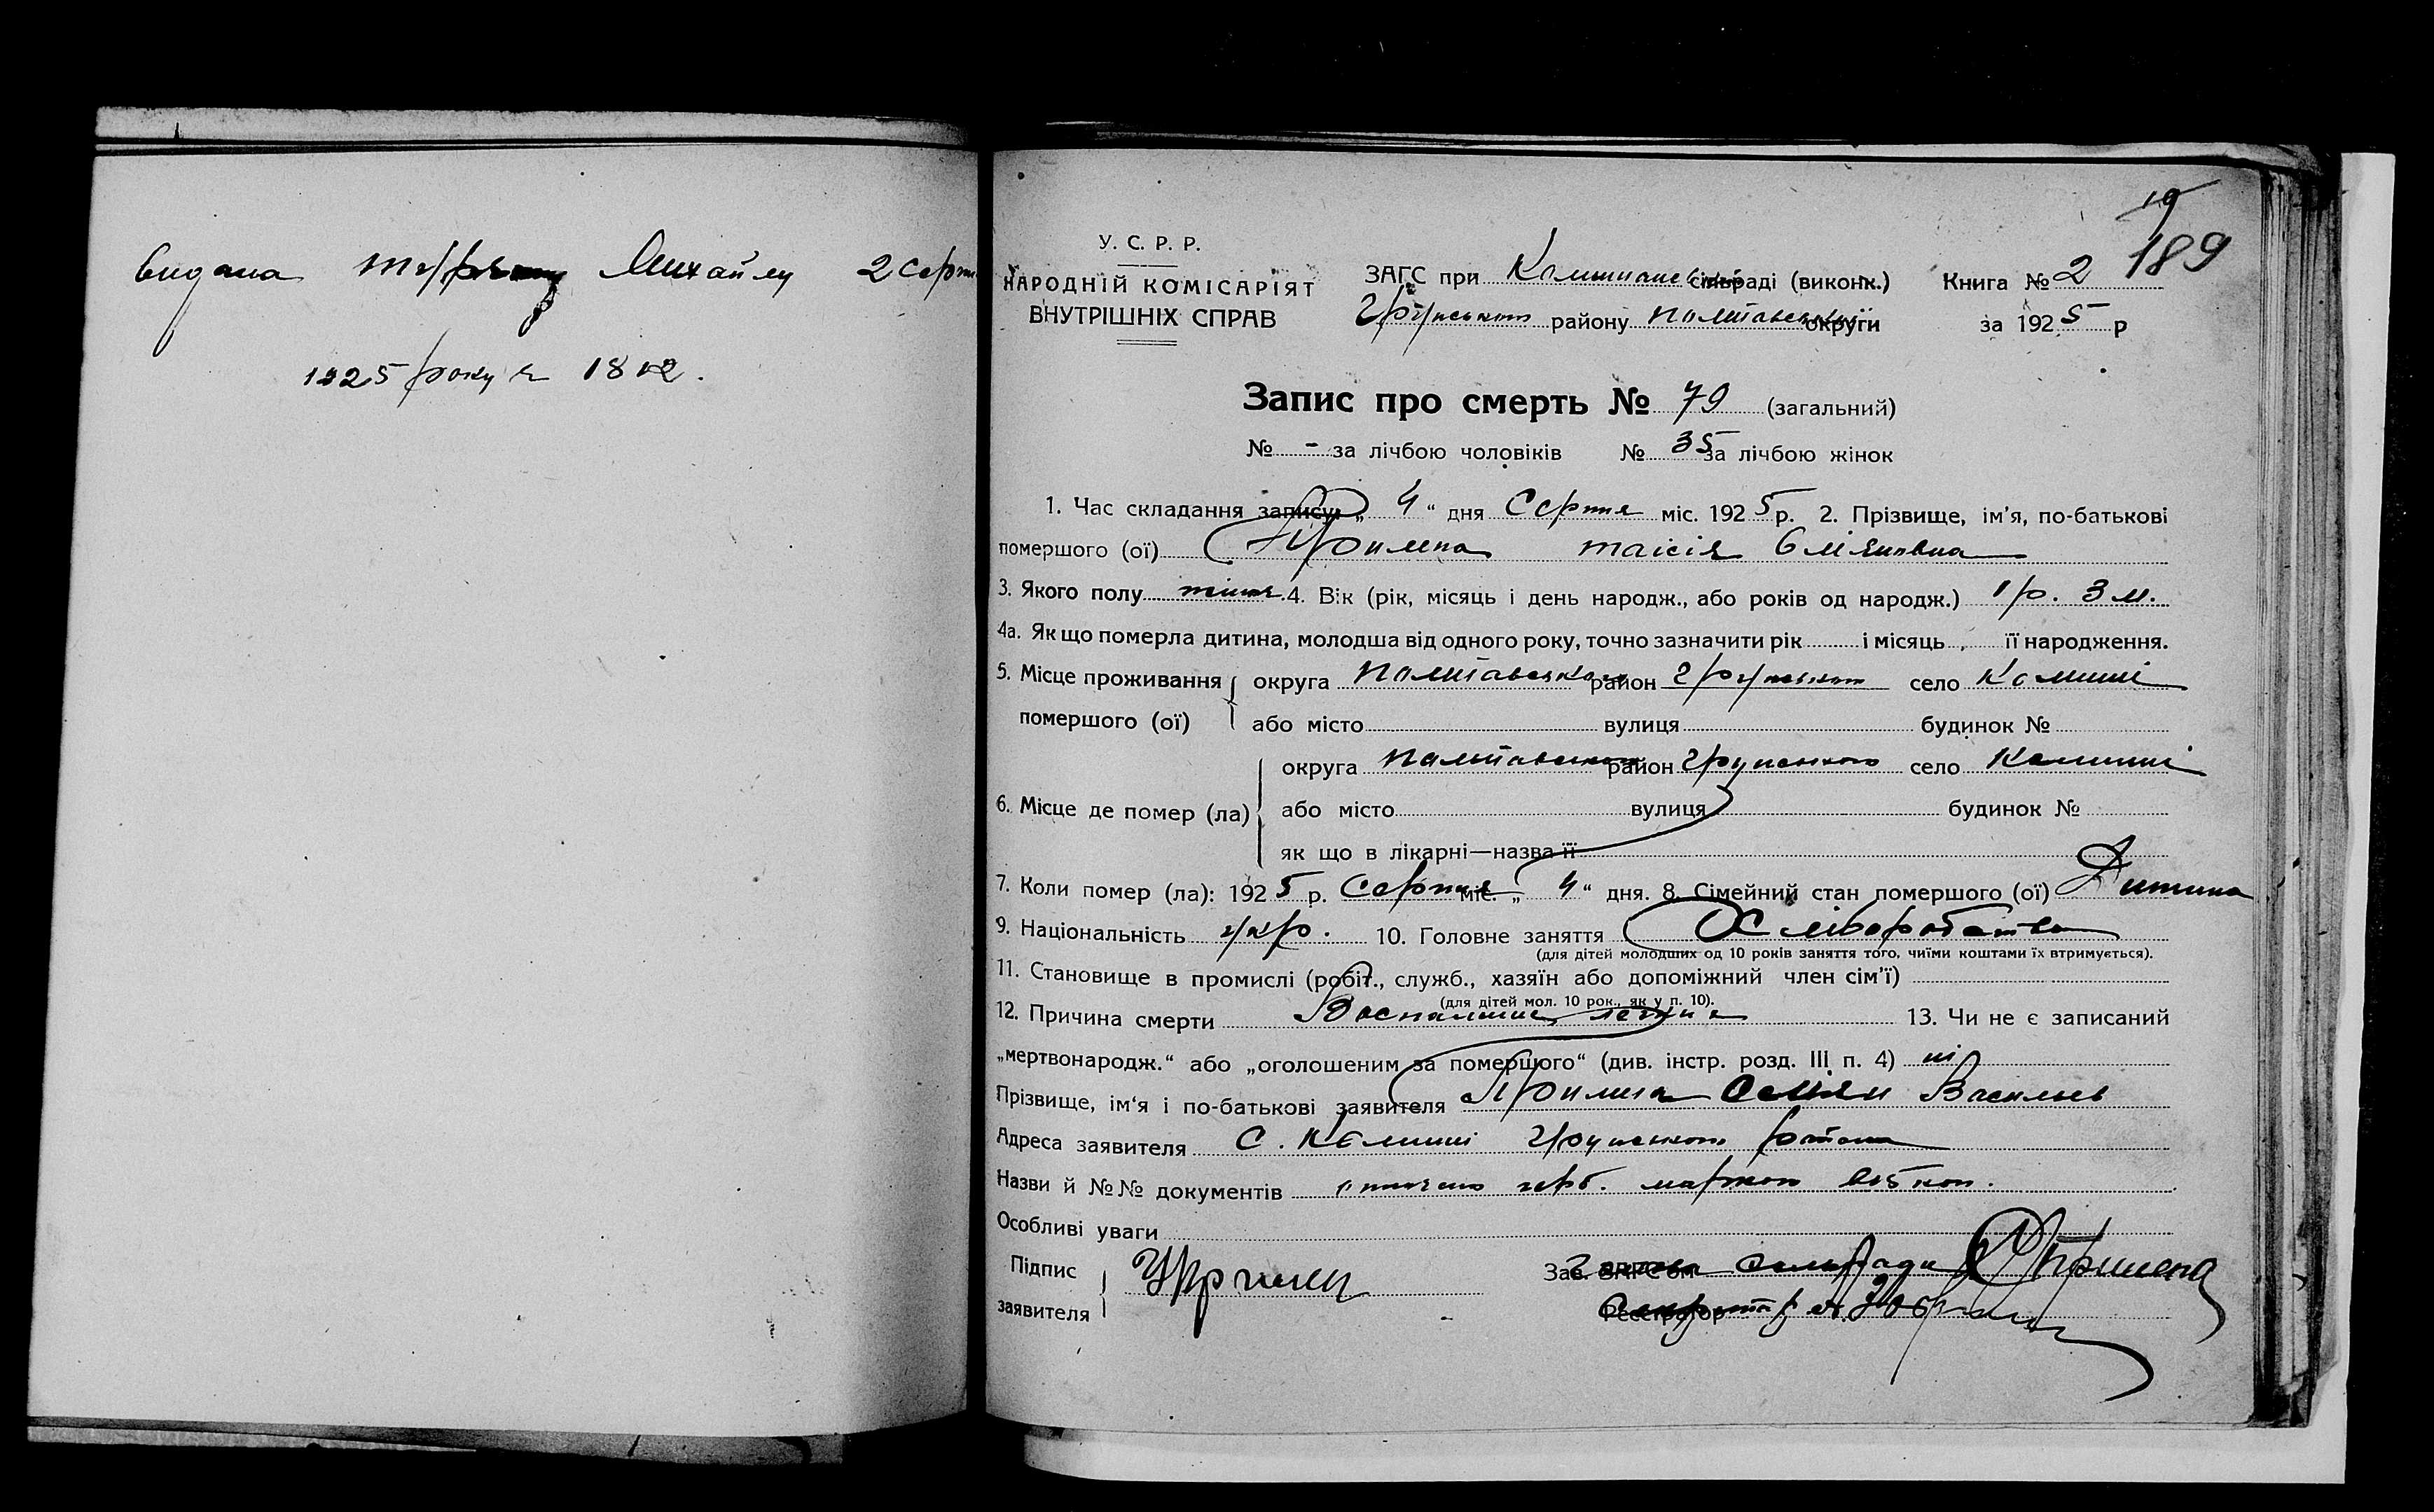 видана Михайлу 2 серп
1925 року № 1812.
19
189
У. С. Р. Р.
НАРОДНІЙ КОМІСАРІЯТ
ВНУТРІШНІХ СПРАВ
ЗАГС при сільраді (виконк.) Книга № 2
Грунського району Полтавської округи за 1925 р
Запис про смерть № 79 (загальний)
№ - за лічбою чоловіків № 35 за лічбою жінок
1. Час складання запису: „ 4 “ дня Серпня міс. 1925 р. 2. Прізвище, ім’я, по-батькові
помершого (ої) Таісія Омілянівна
3. Якого полу жіноч. 4. Вік (рік, місяць і день народж., або років од народж.) 1 р. 3 м.
4а. Як що померла дитина, молодша від одного року, точно зазначити рік і місяць її народження.
5. Місце проживання округа Полтавського район Грунського село Комиші
помершого (ої) або місто вулиця будинок №
округа Полтавського район Грунського село Комиші
6. Місце де помер (ла) або місто вулиця будинок №
як що в лікарні—назва її
7. Коли помер (ла): 1925 р. Серпня міс. „ 4 “ дня. 8. Сімейний стан помершого (ої) Дитина
9. Національність укр. 10. Головне заняття Хліборобство
(для дітей молодших од 10 років заняття того, чиїми коштами їх втримується).
11. Становище в промислі (робіт., служб., хазяїн або допоміжний член сім’ї)
(для дітей мол. 10 рок., як у п. 10).
12. Причина смерти Воспаленіє легких 13. Чи не є записаний
„мертвонародж.“ або „оголошеним за помершого“ (див. інстр. розд. III п. 4) ні
Прізвище, ім’я і по-батькові заявителя Омілян Васильев
Адреса заявителя С. Комиші Грунського району
Назви й №№ документів оплачено герб. маркою в 15 коп.
Особливі уваги
Підпис
заявителя
Зав. ЗАГС’ом Голова Сельради
Реєстратор Секретар